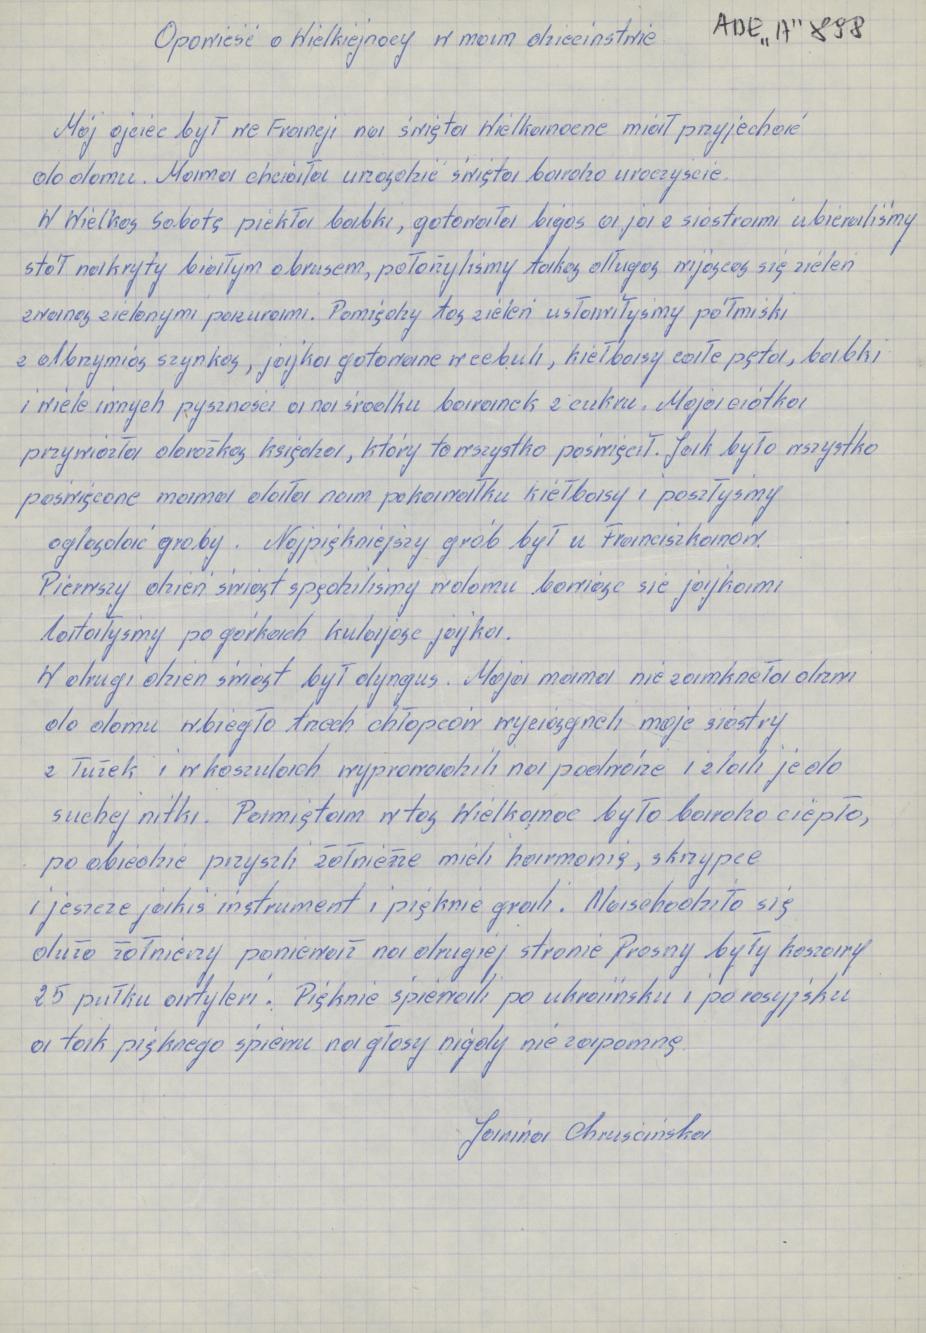 Opowieść o Wielkiejnocy w moim dzieciństwie
ADE „A" 898
Mój ojciec był we Francji na święta Wielkanocne miał przyjechać
do domu. Mama chciała urządzić święta bardzo uroczyście.
W Wielką Sobotę piekła babki, gotowała bigos a ja z siostrami ubieraliśmy
stół nakryty białym obrusem, położyliśmy taką długą wijącą się zieleń
zwaną zielonymi pazurami. Pomiędzy tą zieleń ustawiłyśmy półmiski
z olbrzymią szynką, jajka gotowane w cebuli, kiełbasy całe pęta, babki
i wiele innych pyszności a na środku baranek z cukru. Moja ciotka
przywiozła dorożką księdza, który to wszystko poświęcił. Jak było wszystko
poświęcone mama dała nam po kawałku kiełbasy i poszłyśmy
oglądać groby. Najpiękniejszy grób był u Franciszkanów.
Pierwszy dzień świąt spędziliśmy w domu bawiąc się jajkami
latałyśmy po górkach kulając jajka.
W drugi dzień świąt był dyngus. Moja mama nie zamknęła drzwi
do domu wbiegło trzech chłopców wyciągneli moje siostry
z łużek i w koszulach wyprowadzili na podwórze i zlali je do
suchej nitki. Pamiętam w tą Wielkanoc było bardzo ciepło,
po obiedzie przyszli żołnieże mieli harmonię, skrzypce
i jeszcze jakiś instrument i pięknie grali. Naschodziło się
dużo żołnierzy ponieważ na drugiej stronie Prosny były koszary
25 pułku artyleri. Pięknie śpiewali po ukraińsku i po rosyjsku
a tak pięknego śpiewu na głosy nigdy nie zapomnę.
Janina Chruścińska